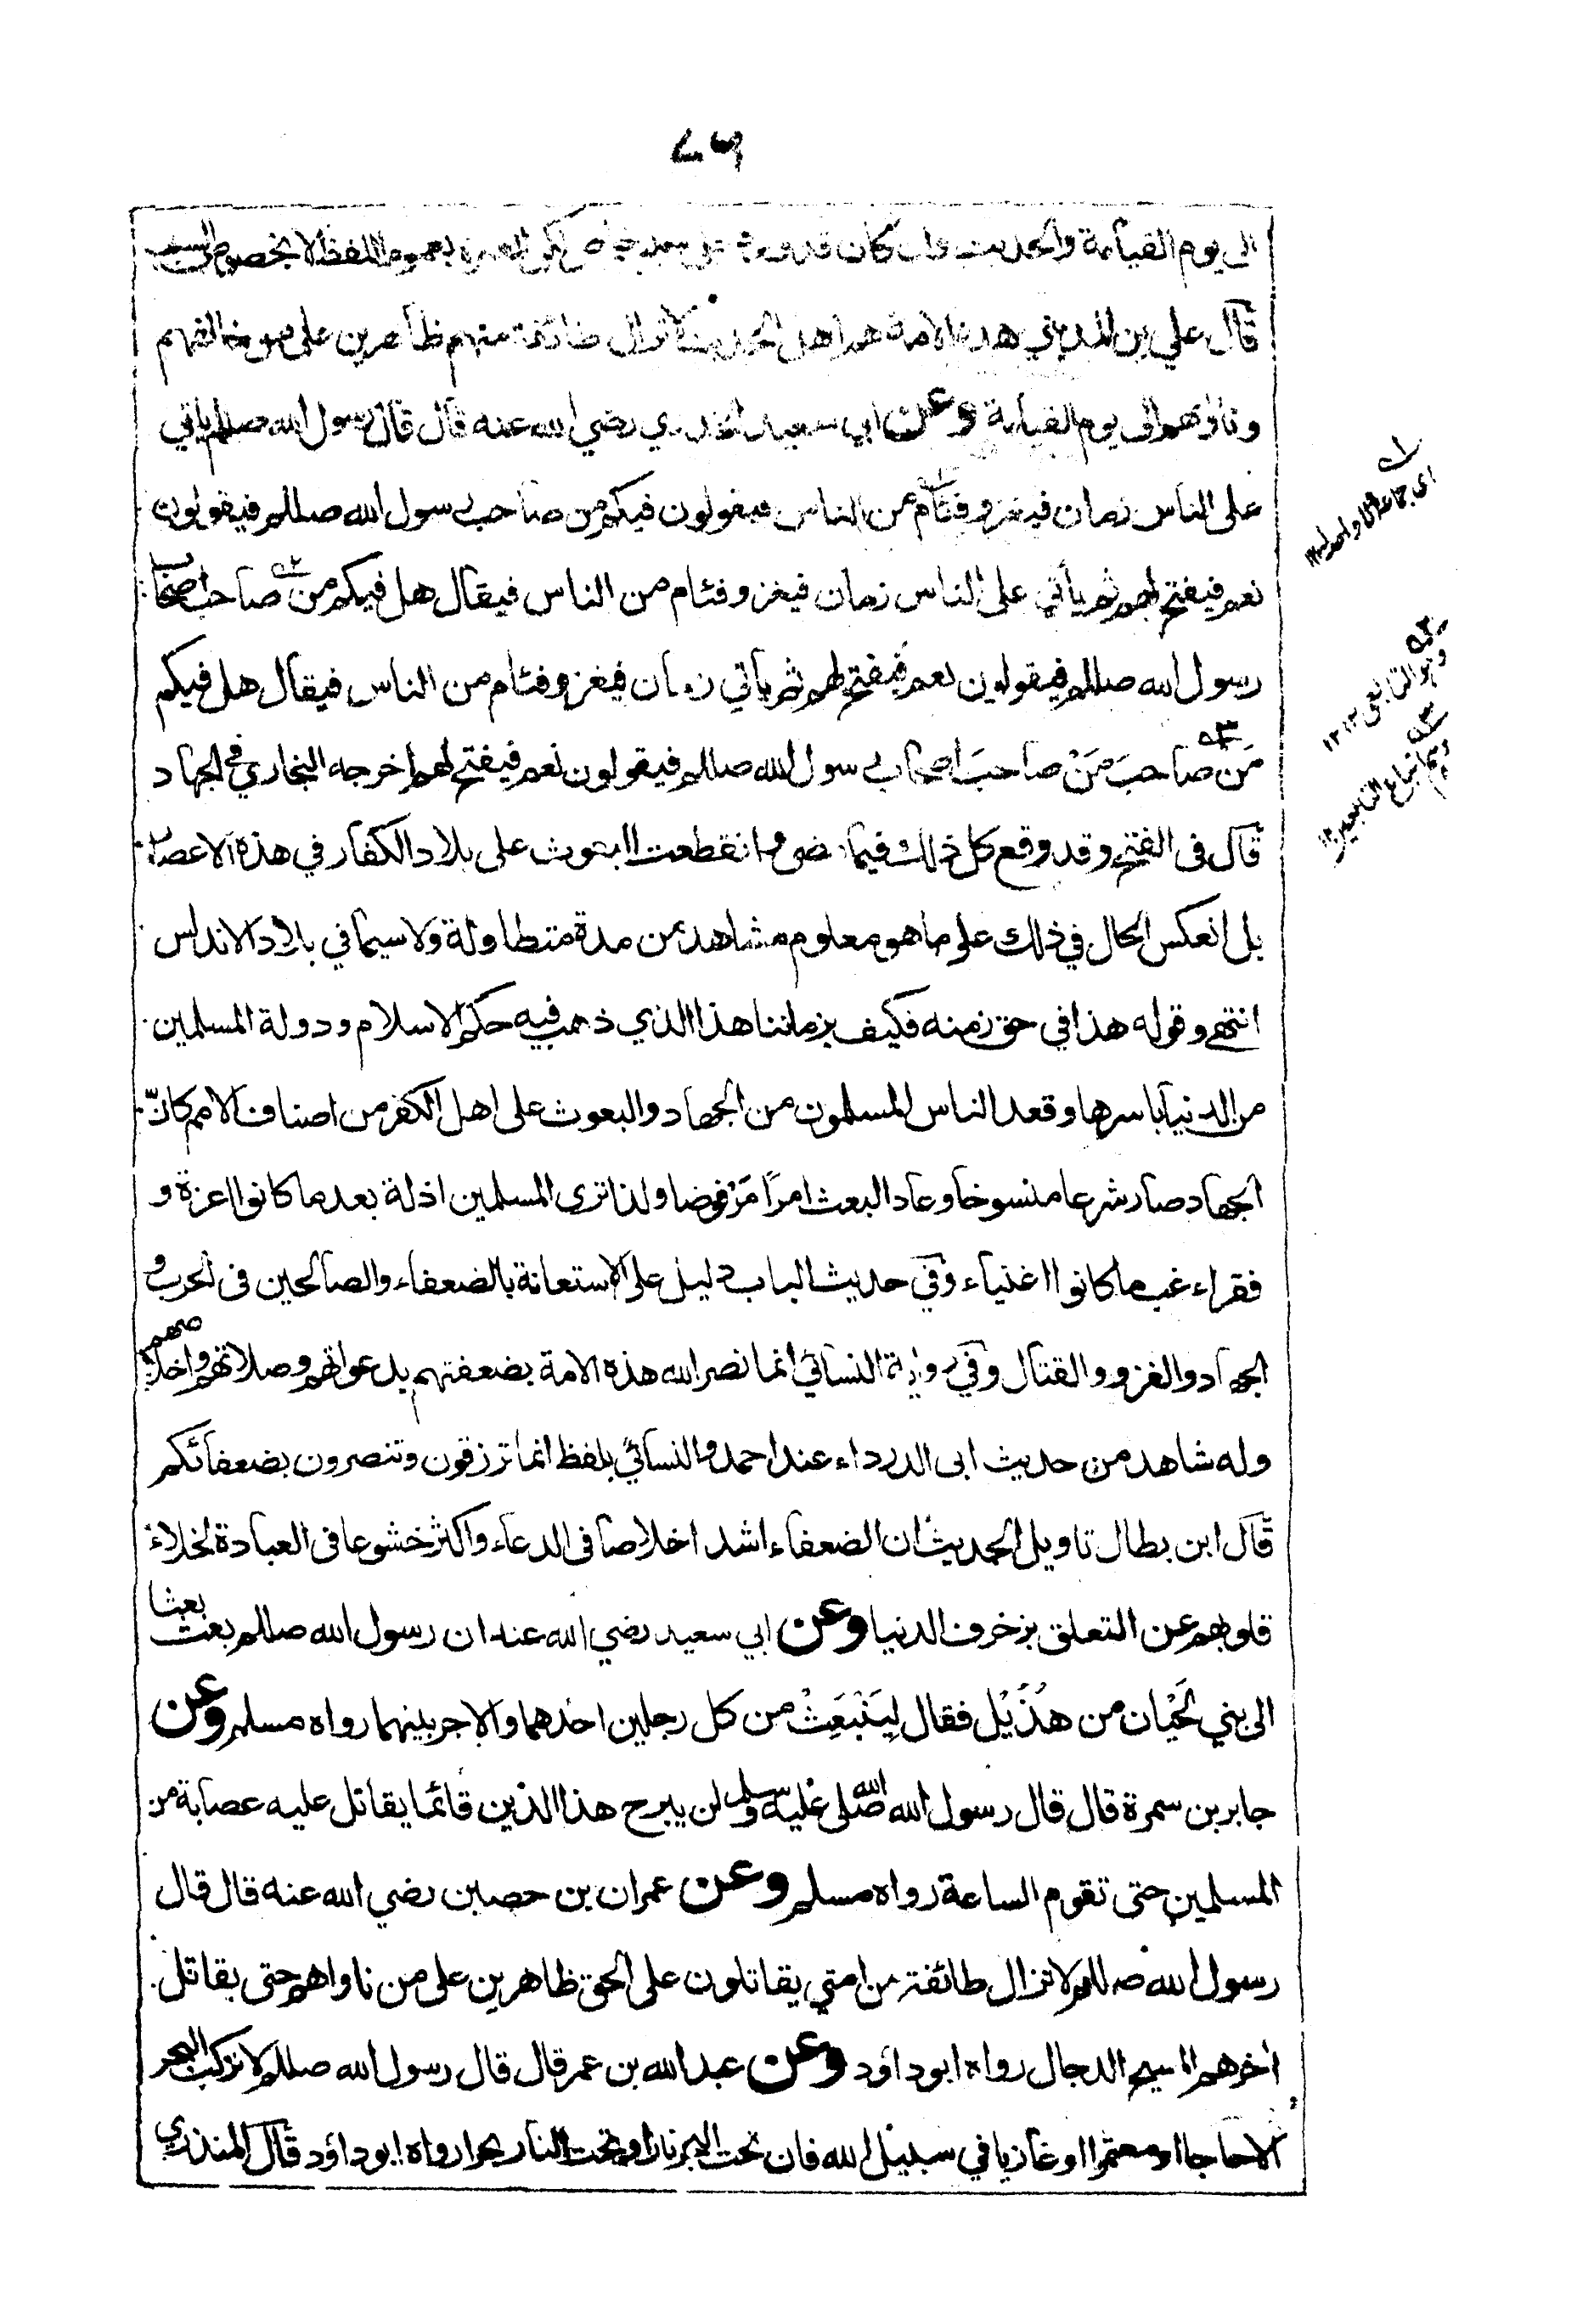 ٧٦
الى يوم القيامة والحديث وان كان قد ورد في العبرة بعموم اللفظ لا بخصوص السبب
قال علي بن المديني هذه الامة هم اهل الحديث لا تزال طائفة منهم ظاهرين على من خالفهم
وناواهم الى يوم القيامة وعن ابي سعيد الخدري رضي الله عنه قال قال رسول الله صللم ياتي
على الناس زمان فيغزو فئام من الناس فيقولون فيكم من صاحب رسول الله صللم فيقولون
نعم فيفتح لهم ثم يأتي على الناس زمان فيغزو فئام من الناس فيقال هل فيكم من صاحب اصحاب
رسول الله صللم فيقولون نعم فيفتح لهم ثم ياتي زمان فيغزو فئام من الناس فيقال هل فيكم
مَن صاحبَ مَنْ صاحبَ اصحاب رسول الله صللم فيقولون نعم فيفتح لهم اخرجه البخاري في الجهاد
قال فى الفتح وقد وقع كل ذلك فيما مضى وانقطعت البعوث على بلاد الكفار في هذه الاعصار
بل انعكس الحال في ذلك على ما هو معلوم مشاهد من مدة متطاولة ولا سيما في بلاد الاندلس
انتهى وقوله هذا في حق زمنه فكيف بزماننا هذا الذي ذهب فيه حكم الاسلام ودولة المسلمين
من الدنيا باسرها وقعد الناس المسلمون من الجهاد والبعوث على اهل الكفر من اصناف الامم كانّ
الجهاد صار شرعا منسوخا وعاد البعث امرًا مَرْفوضا ولذا ترى المسلمين اذلة بعد ما كانوا اعزة و
فقراء غب ما كانوا اغنياء وفي حديث الباب دليل على الاستعانة بالضعفاء والصالحين فى الحرب و
الجهاد والغزو والقتال وفي رواية النسائي انما نصر الله هذه الامة بضعفتهم بدعواتهم وصلاتهم واخلاصهم
وله شاهد من حديث ابى الدرداء عند احمد والنسائي بلفظ انما ترزقون وتنصرون بضعفائكم
قال ابن بطال تاويل الحديث ان الضعفاء اشد اخلاصا فى الدعاء واكثر خشوعا فى العبادة لخلاء
قلوبهم عن التعلق بزخرف الدنيا وعن ابي سعيد رضي الله عنه ان رسول الله صللم بعث بعثا
الى بني لَحْيان من هُذَيْل فقال لِيَنْبَعِثْ من كل رجلين احدهما والاجر بينهما رواه مسلم وعن
جابر بن سمرة قال قال رسول الله صلى الله عليه وسلم لن يبرح هذا الدين قائما يقاتل عليه عصابة من
المسلمين حتى تقوم الساعة رواه مسلم وعن عمران بن حصين رضي الله عنه قال قال
رسول الله صللم لا تزال طائفة من امتي يقاتلون على الحق ظاهرين على من ناواهم حتى يقاتل
اخرهم المسيح الدجال رواه ابو داود وعن عبد الله بن عمر قال قال رسول الله صللم لا تركب البحر
الا حاجا او معتمرا او غازيا في سبيل الله فان تحت البحر نارا وتحت النار بحرا رواه ابو داؤد قال المنذري
١
اى جماعة
٢
وهو التابعى ١٢
٣
وهم اتباع التابعين ١٢